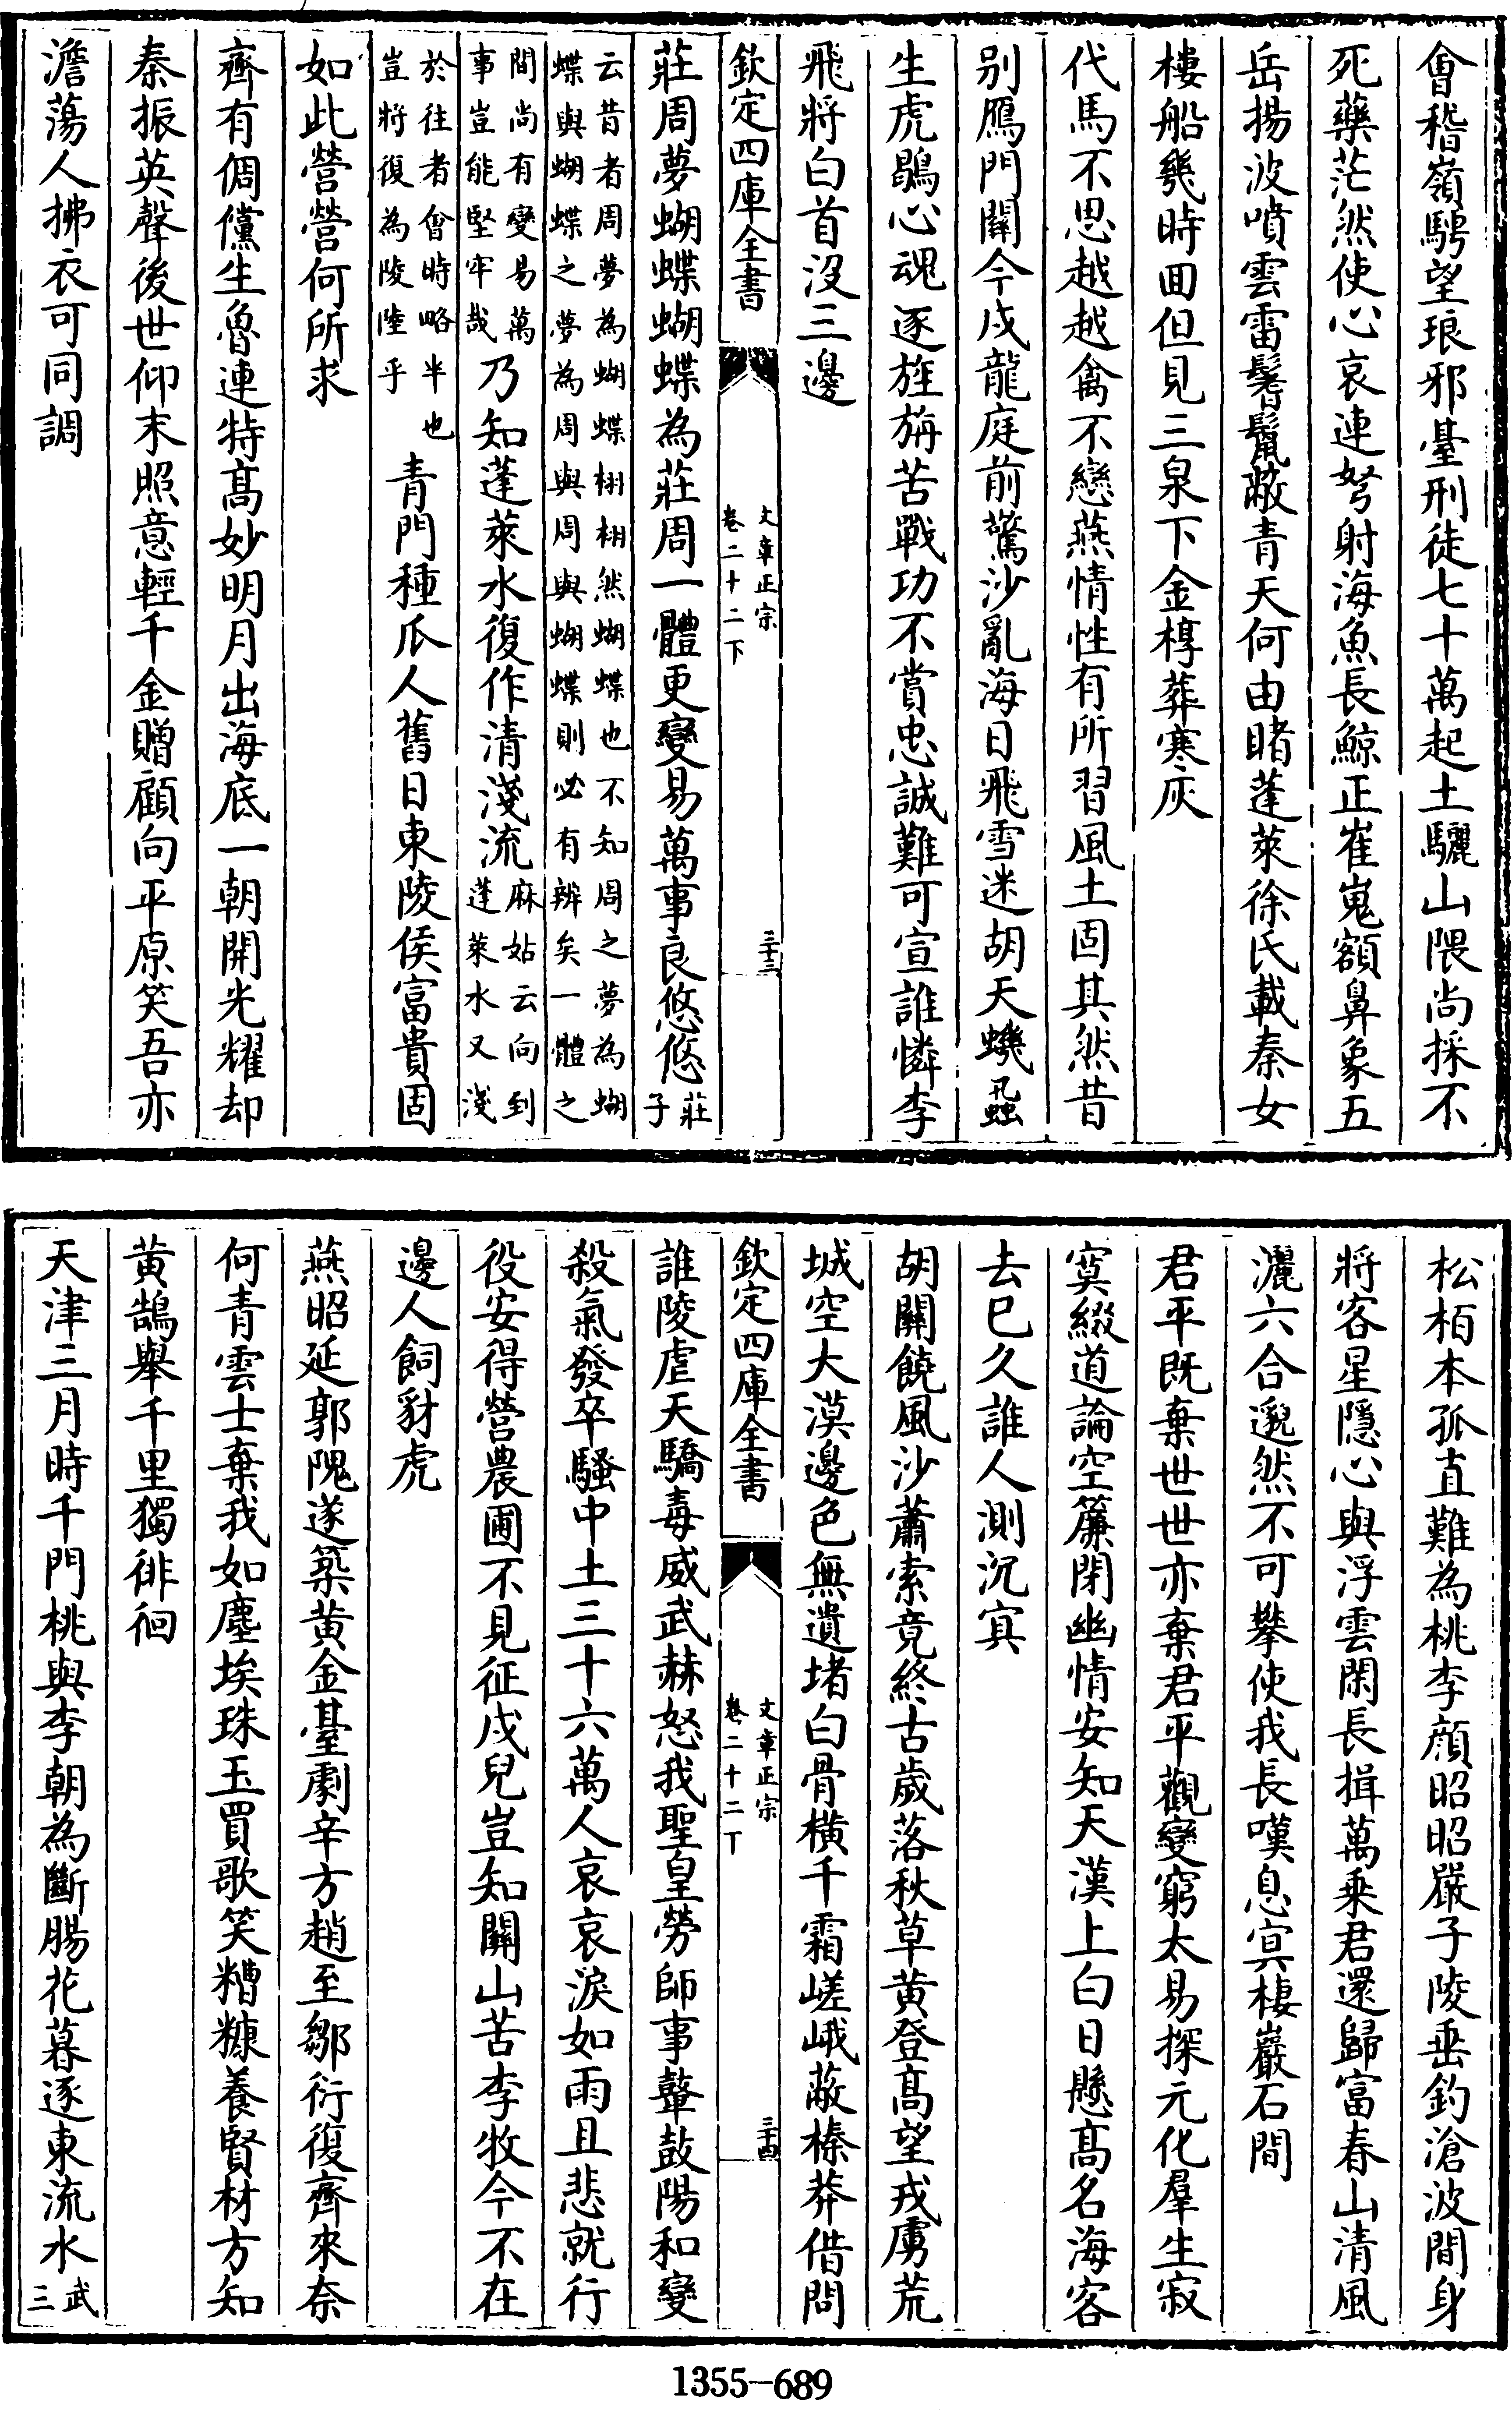 會稽嶺騁望琅邪臺刑徒七十萬起土驪山隈尚採不
死藥茫然使心哀連弩射海魚長鯨正崔嵬額鼻象五
岳揚波噴雲雷鬐鬛蔽青天何由睹蓬萊徐氏載秦女
樓船幾時囬但見三泉下金椁葬寒灰
代馬不思越越禽不戀燕情性有所習風土固其然昔
别鴈門關今戍龍庭前驚沙亂海日飛雪迷胡天蟣蝨
生虎鶡心魂逐旌旃苦戰功不賞忠誠難可宣誰憐李
飛將白首没三邊
欽定四庫全書
文章正宗
卷二十二下
三十三
莊周夢蝴蝶蝴蝶為莊周一體更變易萬事良悠悠莊
子
云昔者周夢為蝴蝶栩栩然蝴蝶也不知周之夢為蝴
蝶與蝴蝶之夢為周與周與蝴蝶則必有辨矣一體之
間尚有變易萬
事豈能堅牢哉
乃知蓬萊水復作清淺流
麻姑云向到
蓬萊水又淺
於往者㑹時略半也
豈將復為陵陸乎
青門種瓜人舊日東陵侯富貴固
如此營營何所求
齊有倜儻生魯連特髙妙明月出海底一朝開光耀却
秦振英聲後世仰末照意輕千金贈顧向平原笑吾亦
澹蕩人拂衣可同調
松栢本孤直難為桃李顔昭昭嚴子陵垂釣滄波間身
將客星隱心與浮雲閑長揖萬乗君還歸富春山清風
灑六合邈然不可攀使我長嘆息㝠棲巖石間
君平既棄世世亦棄君平觀變窮太易探元化羣生寂
寞綴道論空簾閉幽情安知天漢上白日懸髙名海客
去已久誰人測沉㝠
胡關饒風沙蕭索竟終古歲落秋草黄登髙望戎虜荒
城空大漠邊色無遺堵白骨橫千霜嵯峨蔽榛莽借問
欽定四庫全書
文章正宗
卷二十二下
三十四
誰陵虐天驕毒威武赫怒我聖皇勞師事鼙鼓陽和變
殺氣發卒騷中土三十六萬人哀哀淚如雨且悲就行
役安得營農圃不見征戍兒豈知關山苦李牧今不在
邊人飼豺虎
燕昭延郭隗遂築黄金臺劇辛方趙至鄒衍復齊來奈
何青雲士棄我如塵埃珠玉買歌笑糟糠養賢材方知
黄鵠舉千里獨徘徊
天津三月時千門桃與李朝為斷腸花暮逐東流水武
三
1355-689